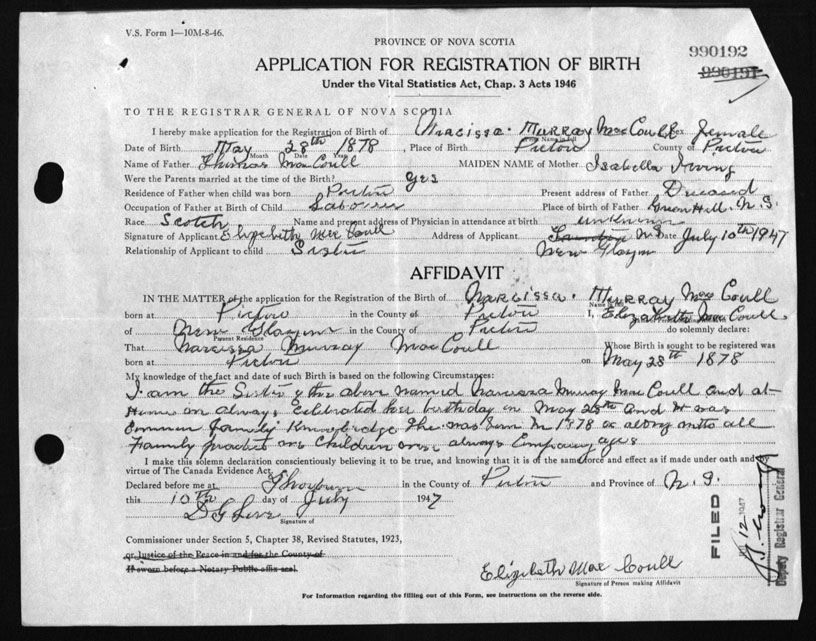 V.S. Form 1—10M-8-46.
PROVINCE OF NOVA SCOTIA
990192
990191
APPLICATION FOR REGISTRATION OF BIRTH
Under the Vital Statistics Act, Chap. 3 Acts 1946
TO THE REGISTRAR GENERAL OF NOVA SCOTIA
I hereby make application for the Registration of Birth of Narcissa Murray MacCoull Sex Female
Name in full
Date of Birth May 28th 1878, Place of Birth Pictou County of Pictou
Month Date Year
Name of Father Thomas MacCoull MAIDEN NAME of Mother Isabella Irving
Were the Parents married at the time of Birth? Yes
Residence of Father when child was born Pictou Present address of Father Deceased
Occupation of Father at Birth of Child Labourer Place of birth of Father Green Hill. N.S.
Race Scotch Name and present address of Physician in attendance at birth unknown
Signature of Applicant Elizabeth MacCoull Address of Applicant N.S. Date July 10th 1947
Relationship of Applicant to child Sister New Glasgow
AFFIDAVIT
IN THE MATTER of the application for the Registration of the Birth of Narcissa Murray MacCoull
Name in full
born at Pictou in the County of Pictou I, Elizabeth MacCoull
of New Glasgow in the County of Pictou do solemnly declare:
Present Residence
That Narcissa Murray MacCoull Whose Birth is sought to be registered was
born at Pictou on May 28th 1878
My knowledge of the fact and date of such Birth is based on the following Circumstances:
I am the Sister of the above named Narcissa Murray MacCoull and at
Home we always celebrated her birthday on May 28th and it was
Common family Knowledge she was born in 1878 as along with all
Family we Children were always Comparing ages
I make this solemn declaration conscientiously believing it to be true, and knowing that it is of the same force and effect as if made under oath and by
virtue of The Canada Evidence Act.
Declared before me at Thorburn in the County of Pictou and Province of N.S.
this 10th day of July 1947
Signature of
Commissioner under Section 5, Chapter 38, Revised Statutes, 1923,
or Justice of the Peace in and for the County of
If sworn before a Notary Public affix seal.
FILED
12-1947
Deputy Registrar General
Elizabeth MacCoull
Signature of Person making Affidavit
For Information regarding the filling out of this Form, see instructions on the reverse side.